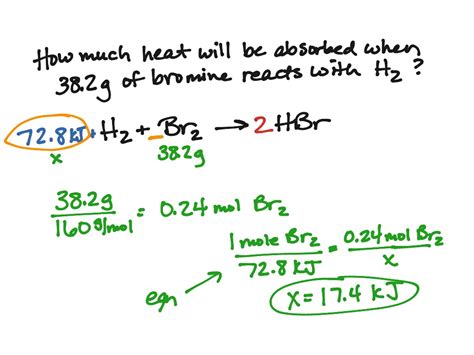 How much heat will be absorbed when
38.2g of bromine reacts with H₂ ?
72.8 kJ + H₂ + _Br₂ → 2HBr
x 38.2g
38.2g / 160 g/mol = 0.24 mol Br₂
1 mole Br₂ / 72.8 kJ = 0.24 mol Br₂ / x
eqn
x = 17.4 kJ